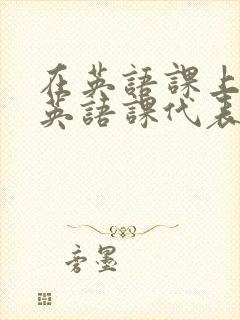 在英語課上
英語課代表
旁墨